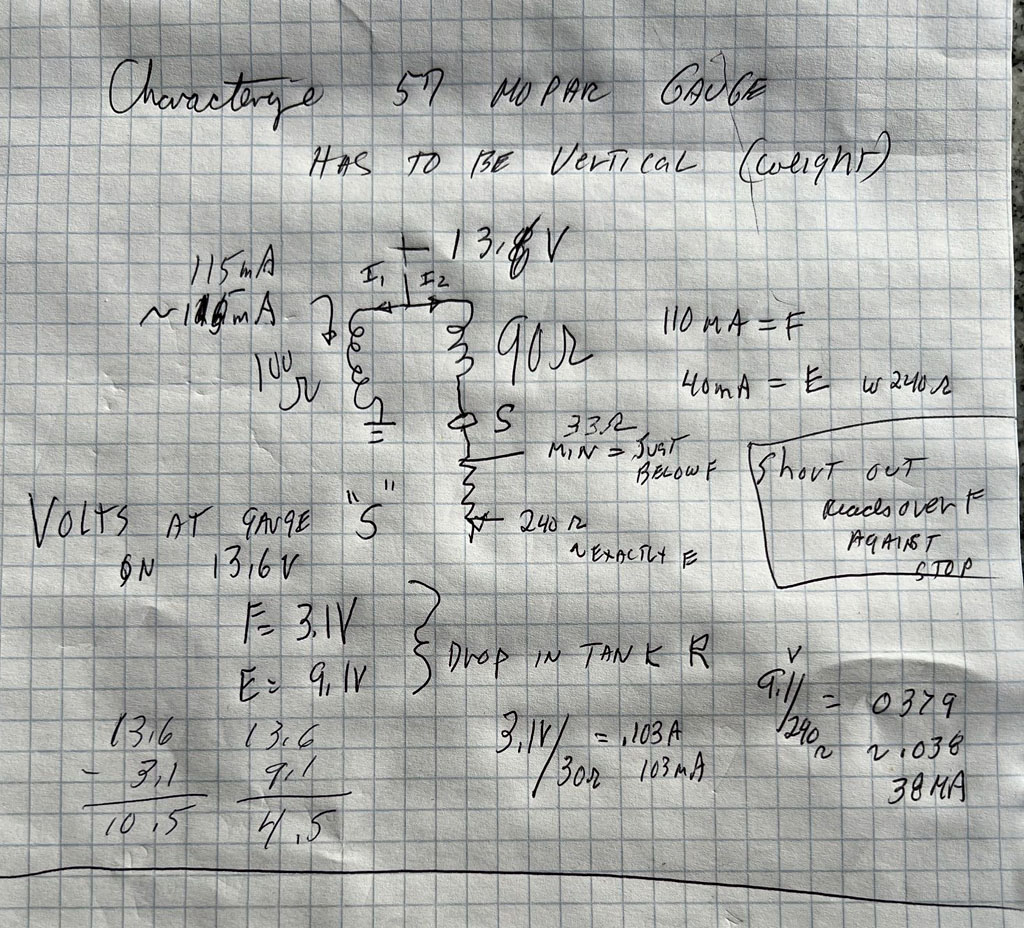 Characterize 57 MOPAR GAUGE
HAS TO BE VERTICAL (weight)
+ 13.6V
115mA
I1 I2
~115mA
100Ω
90Ω
110 MA = F
40mA = E w 240Ω
S
33Ω
MIN = JUST
BELOW F
Short out
reads over F
AGAINST
STOP
VOLTS AT GAUGE "S"
ON 13.6V
240Ω
~EXACTLY E
F= 3.1V
E= 9.1V
DROP IN TANK R
13.6
- 3.1
10.5
13.6
9.1
4.5
3.1V/30Ω = .103A
103mA
9.1V/240Ω = 0379
~.038
38MA